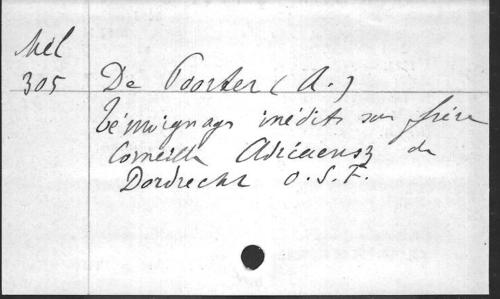 Mél
305 De Poorter (A.)
Témoignages inédits sur frère
Corneille Adriaensz de
Dordrecht O.S.F.